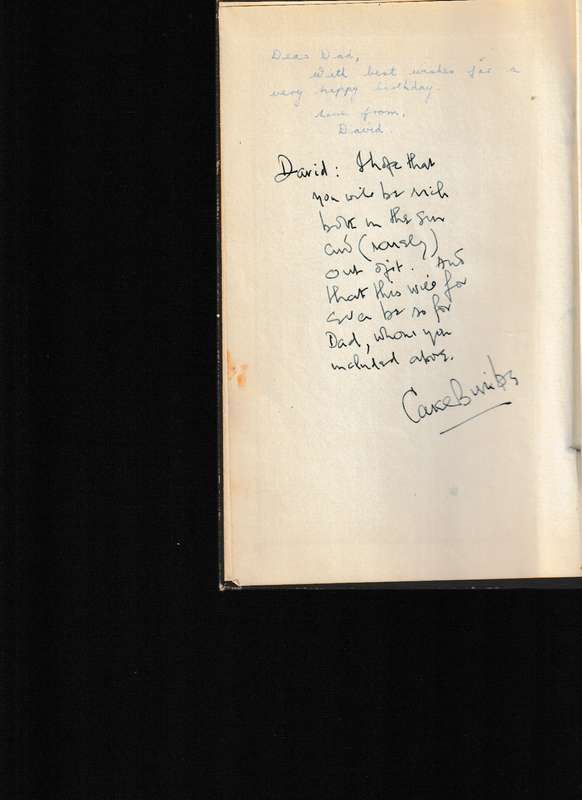 Dear Dad,
With best wishes for a
very happy birthday.
love from,
David.
David: I hope that
you will be rich
both in the sun
and (rarely)
out of it. And
that this will for
ever be so for
Dad, whom you
included above.